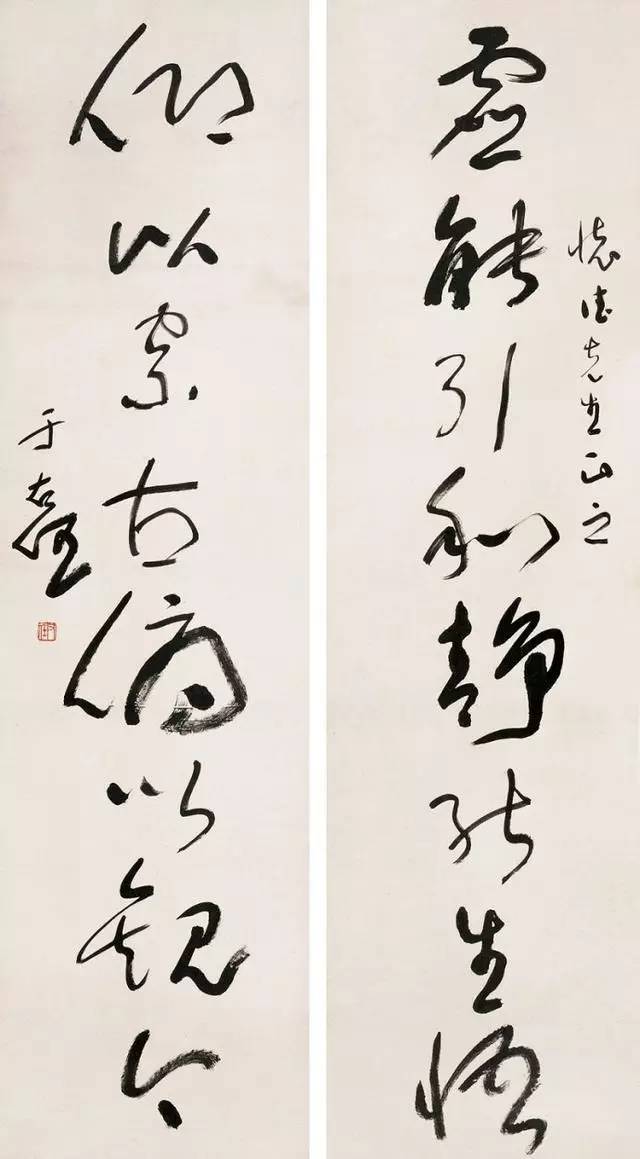 懷德先生正之
虛能引和靜能生悟
仰以察古俯以觀今
于右任